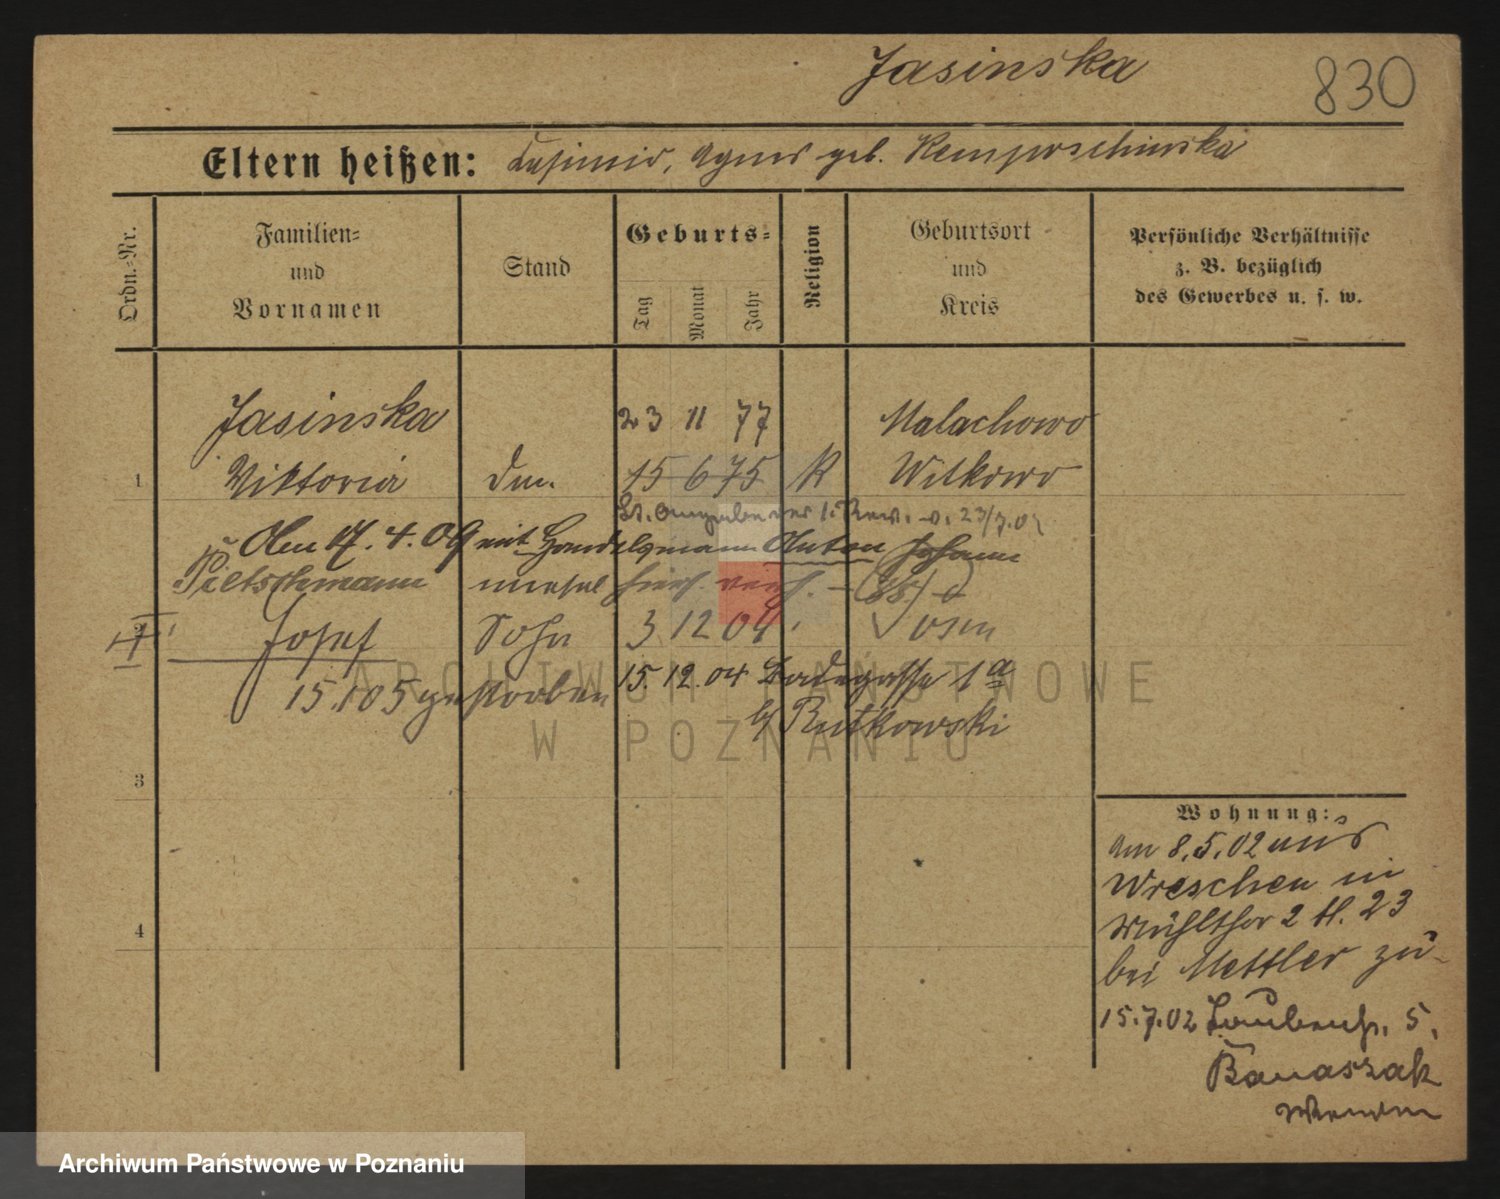 Jasinska
830
Eltern heißen: Kasimir, Agnes geb. Kemposchinska
Ordn.-Nr.
Familien-
und
Vornamen
Stand
Geburts-
Tag
Monat
Jahr
Religion
Geburtsort
und
Kreis
Persönliche Verhältnisse
z. B. bezüglich
des Gewerbes u. s. w.
Jasinska 23 11 77 Malachowo
1 Viktoria 15 6 75 K Witkowo
lt. Angabe der v. 23/7.02
Am 17. 4. 09 mit Handelsmann Anton Johann
Pietschmann hier verh.
2 Josef Sohn 3 12 04 Posen
15.1.05 gestorben 15. 12. 04 Badegasse 1a
b/ Rutkowski
3
4
Wohnung:
am 8.5.02 aus
Wreschen in
Mühlthor 2 tl. 23
bei Mettler zu-
15.7.02 5,
Banaszak
ARCHIWUM PAŃSTWOWE
W POZNANIU
Archiwum Państwowe w Poznaniu